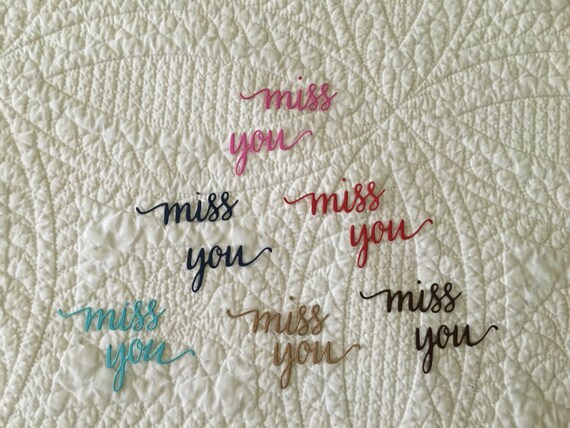 miss
you
miss
you
miss
you
miss
you
miss
you
miss
you